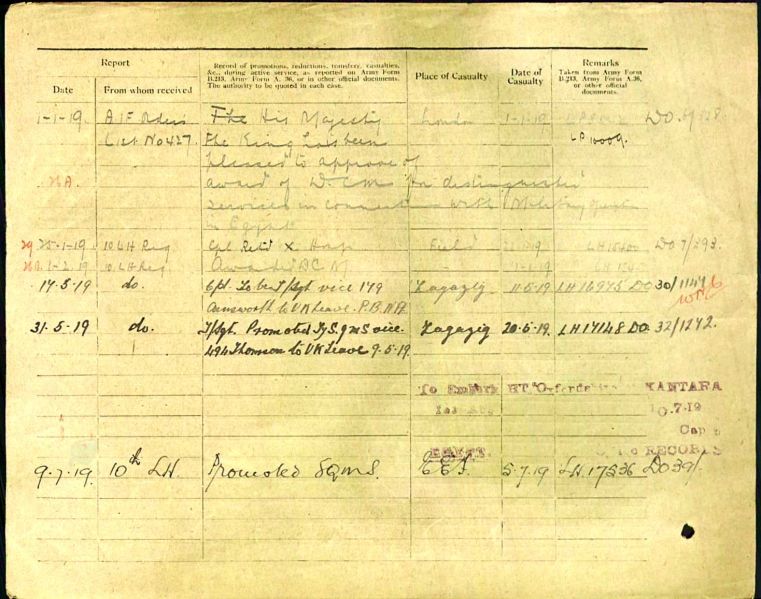 Report
Record of promotions, reductions, transfers, casualties,
&c., during active service, as reported on Army Form
B.213, Army Form A.36, or in other official documents.
The authority to be quoted in each case.
Place of Casualty
Date of
Casualty
Remarks
Taken from Army Form
B.213, Army Form A.36,
or other official
documents.
Date
From whom received
1-1-19. A.I.F. Orders The His Majesty London 1-1-19 DO
List No 427 The King has been LP 10009.
pleased to approve of
award of D.C.M for distinguished
services in connection with Military Operations
in Egypt
25-1-19 10. L.H. Reg Cpl Field DO 7/293.
1-2-19 10. L.H. Reg Awarded DCM
17-5-19 do. Cpl. To be T/Sgt vice 179 Zagazig 11-5-19 LH 16975 DO 30/1149
Ainsworth to UK Leave.
31-5-19 do. T/Sgt. Promoted T/SQMS vice Zagazig 20-5-19. LH 17148 DO. 32/1242.
494 Thomson to UK Leave 9-5-19.
To Embark HT "Oxfordshire" KANTARA
10.7.19
Capt
EGYPT. RECORDS
9.7.19. 10th LH. Promoted SQMS. EEF. 5.7.19 LH.17536 DO 39/.